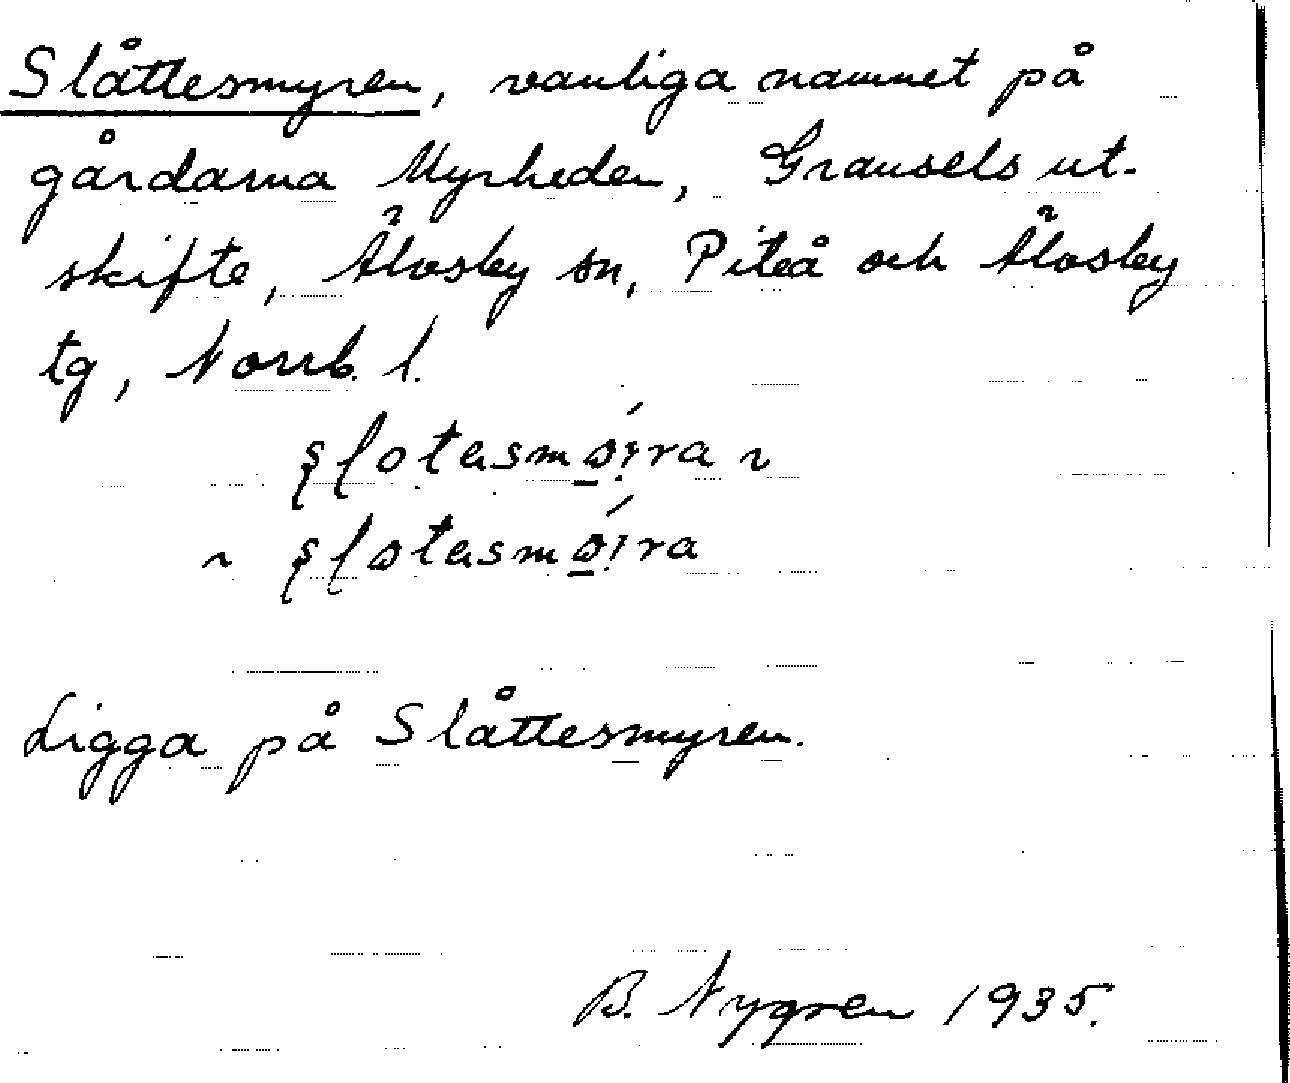 Slåttesmyren, vanliga namnet på
gårdarna Myrheden, Gransels ut-
skifte, Älvsby sn, Piteå och Älvsby
tg, Norrb. l.
Ligga på Slåttesmyren.
B. Nygren 1935.